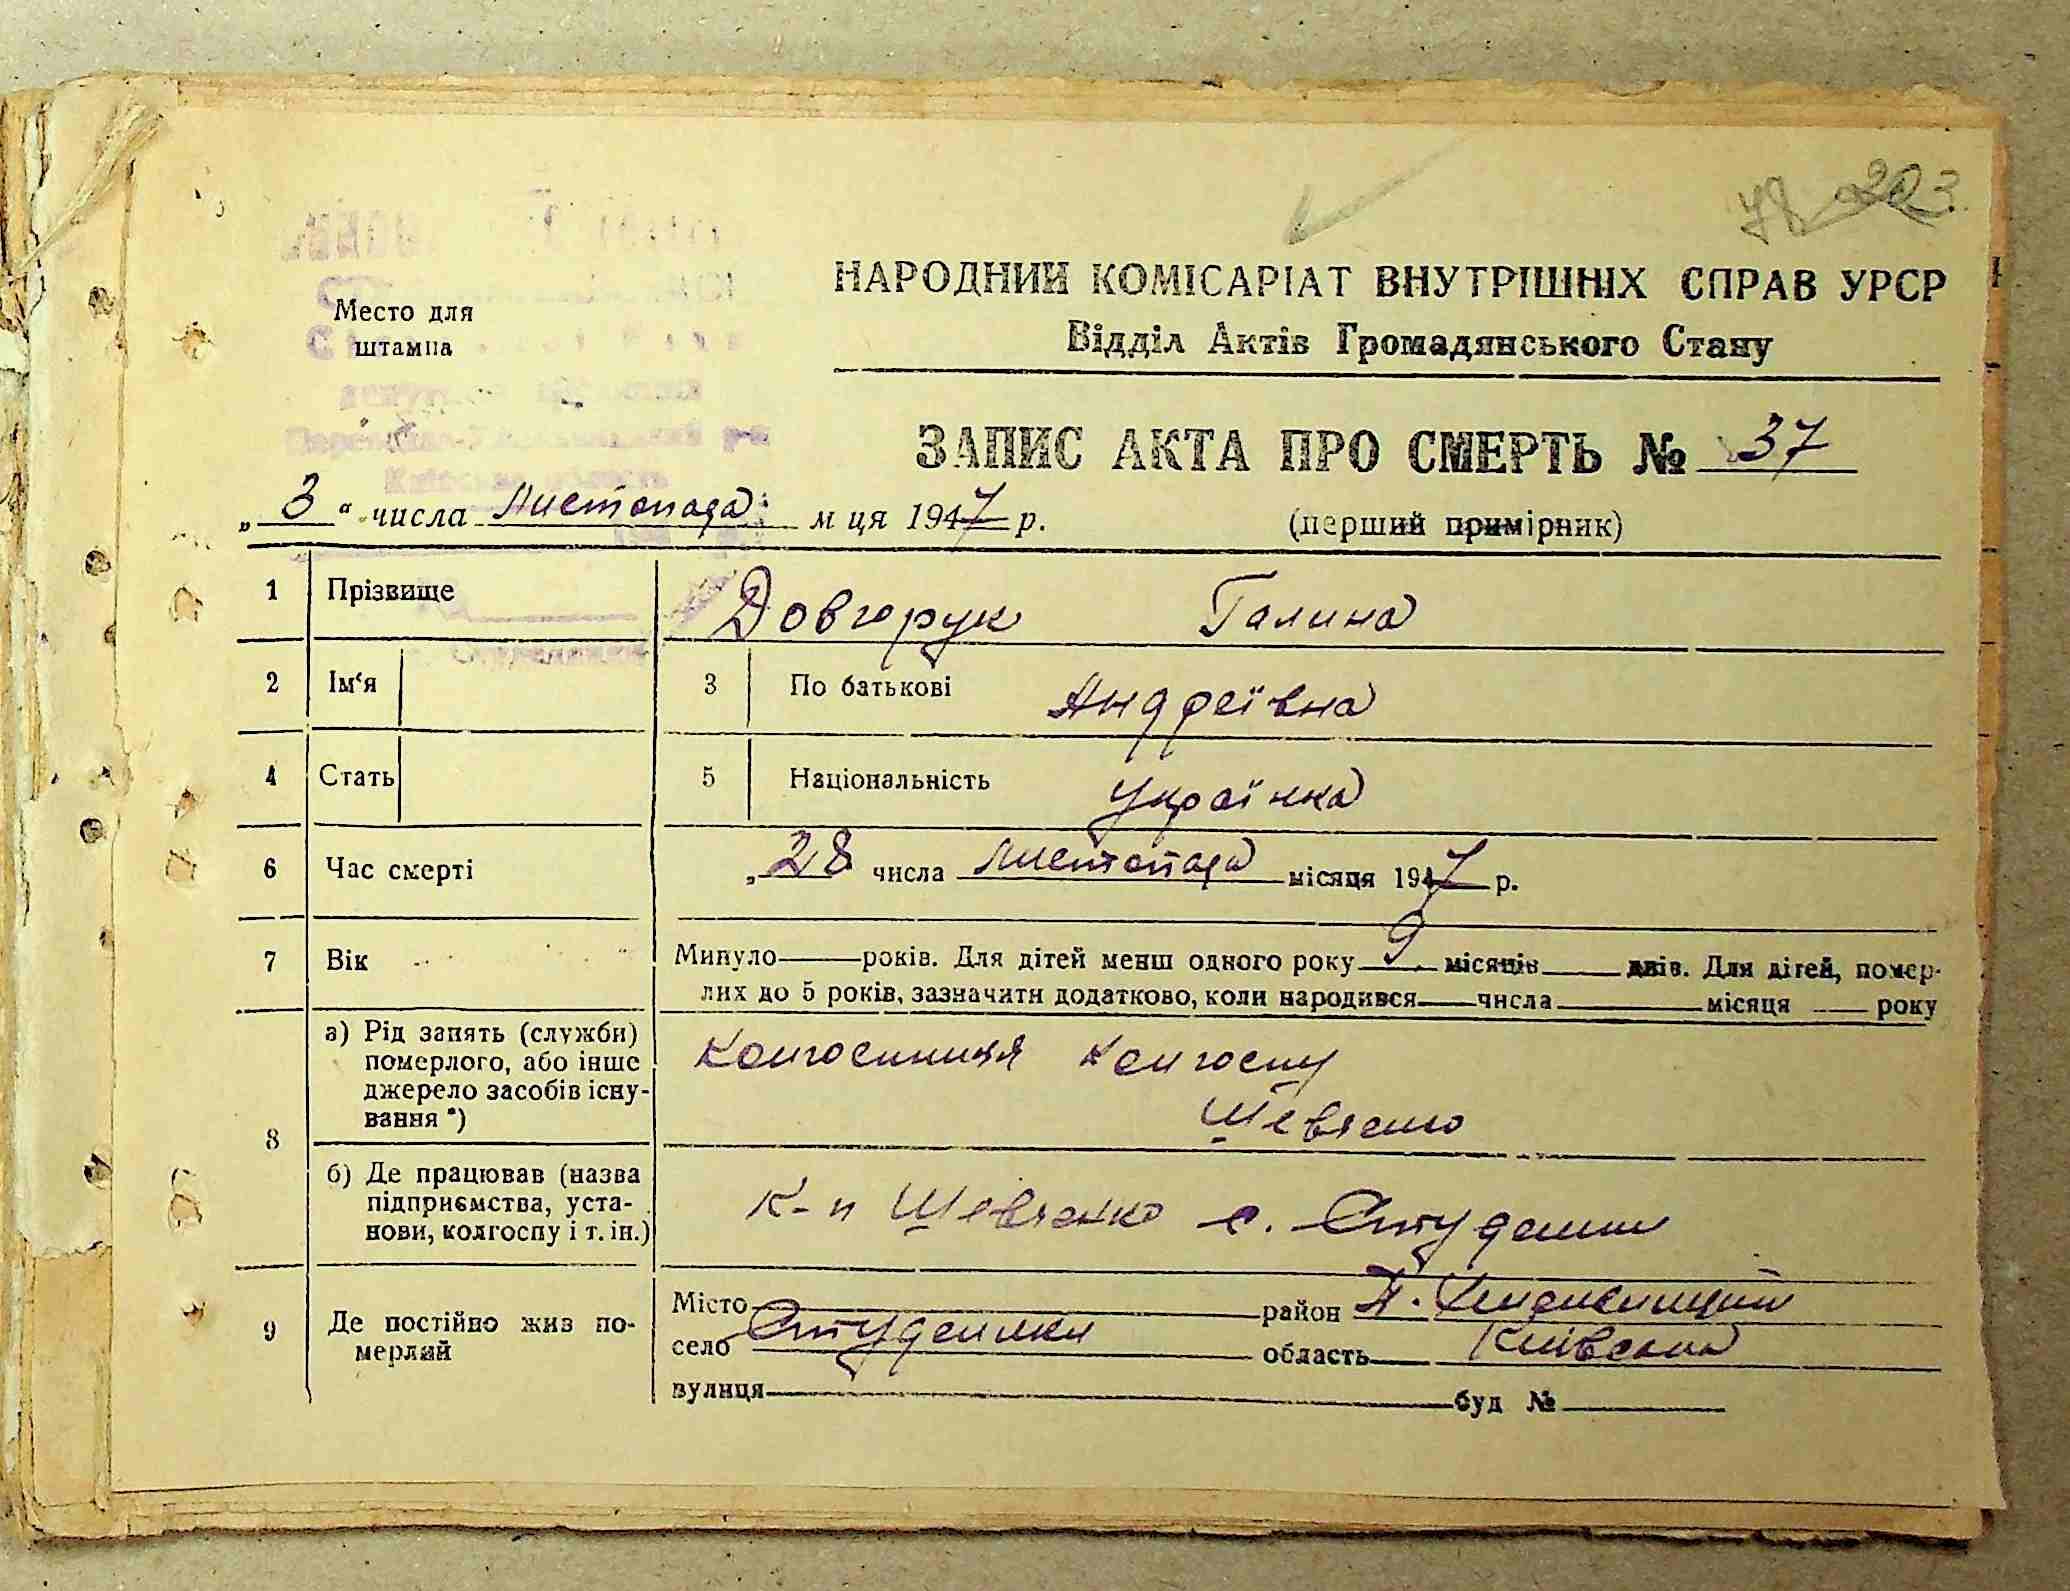 78 203
НАРОДНИЙ КОМІСАРІАТ ВНУТРІШНІХ СПРАВ УРСР
Відділ Актів Громадянського Стану
Место для
штампа
ЗАПИС АКТА ПРО СМЕРТЬ № 37
(перший примірник)
„3“ числа Листопада м ця 1947 р.
1 Прізвище Довгорук Галина
2 Ім‘я 3 По батькові Андреївна
4 Стать 5 Національність Українка
6 Час смерті „28 числа Листопада місяця 1947 р.
7 Вік Минуло років. Для дітей менш одного року 9 місяців днів. Для дітей, помер-
лих до 5 років, зазначити додатково, коли народився числа місяця року
8 а) Рід занять (служби)
померлого, або інше
джерело засобів існу-
вання *)
Колгоспниця колгоспу
Шевченко
б) Де працював (назва
підприємства, уста-
нови, колгоспу і т. ін.)
К-п Шевченко с.
9 Де постійно жив по-
мерлий
Місто район П. Хмельницький
село Студеники область Київська
вулиця буд №